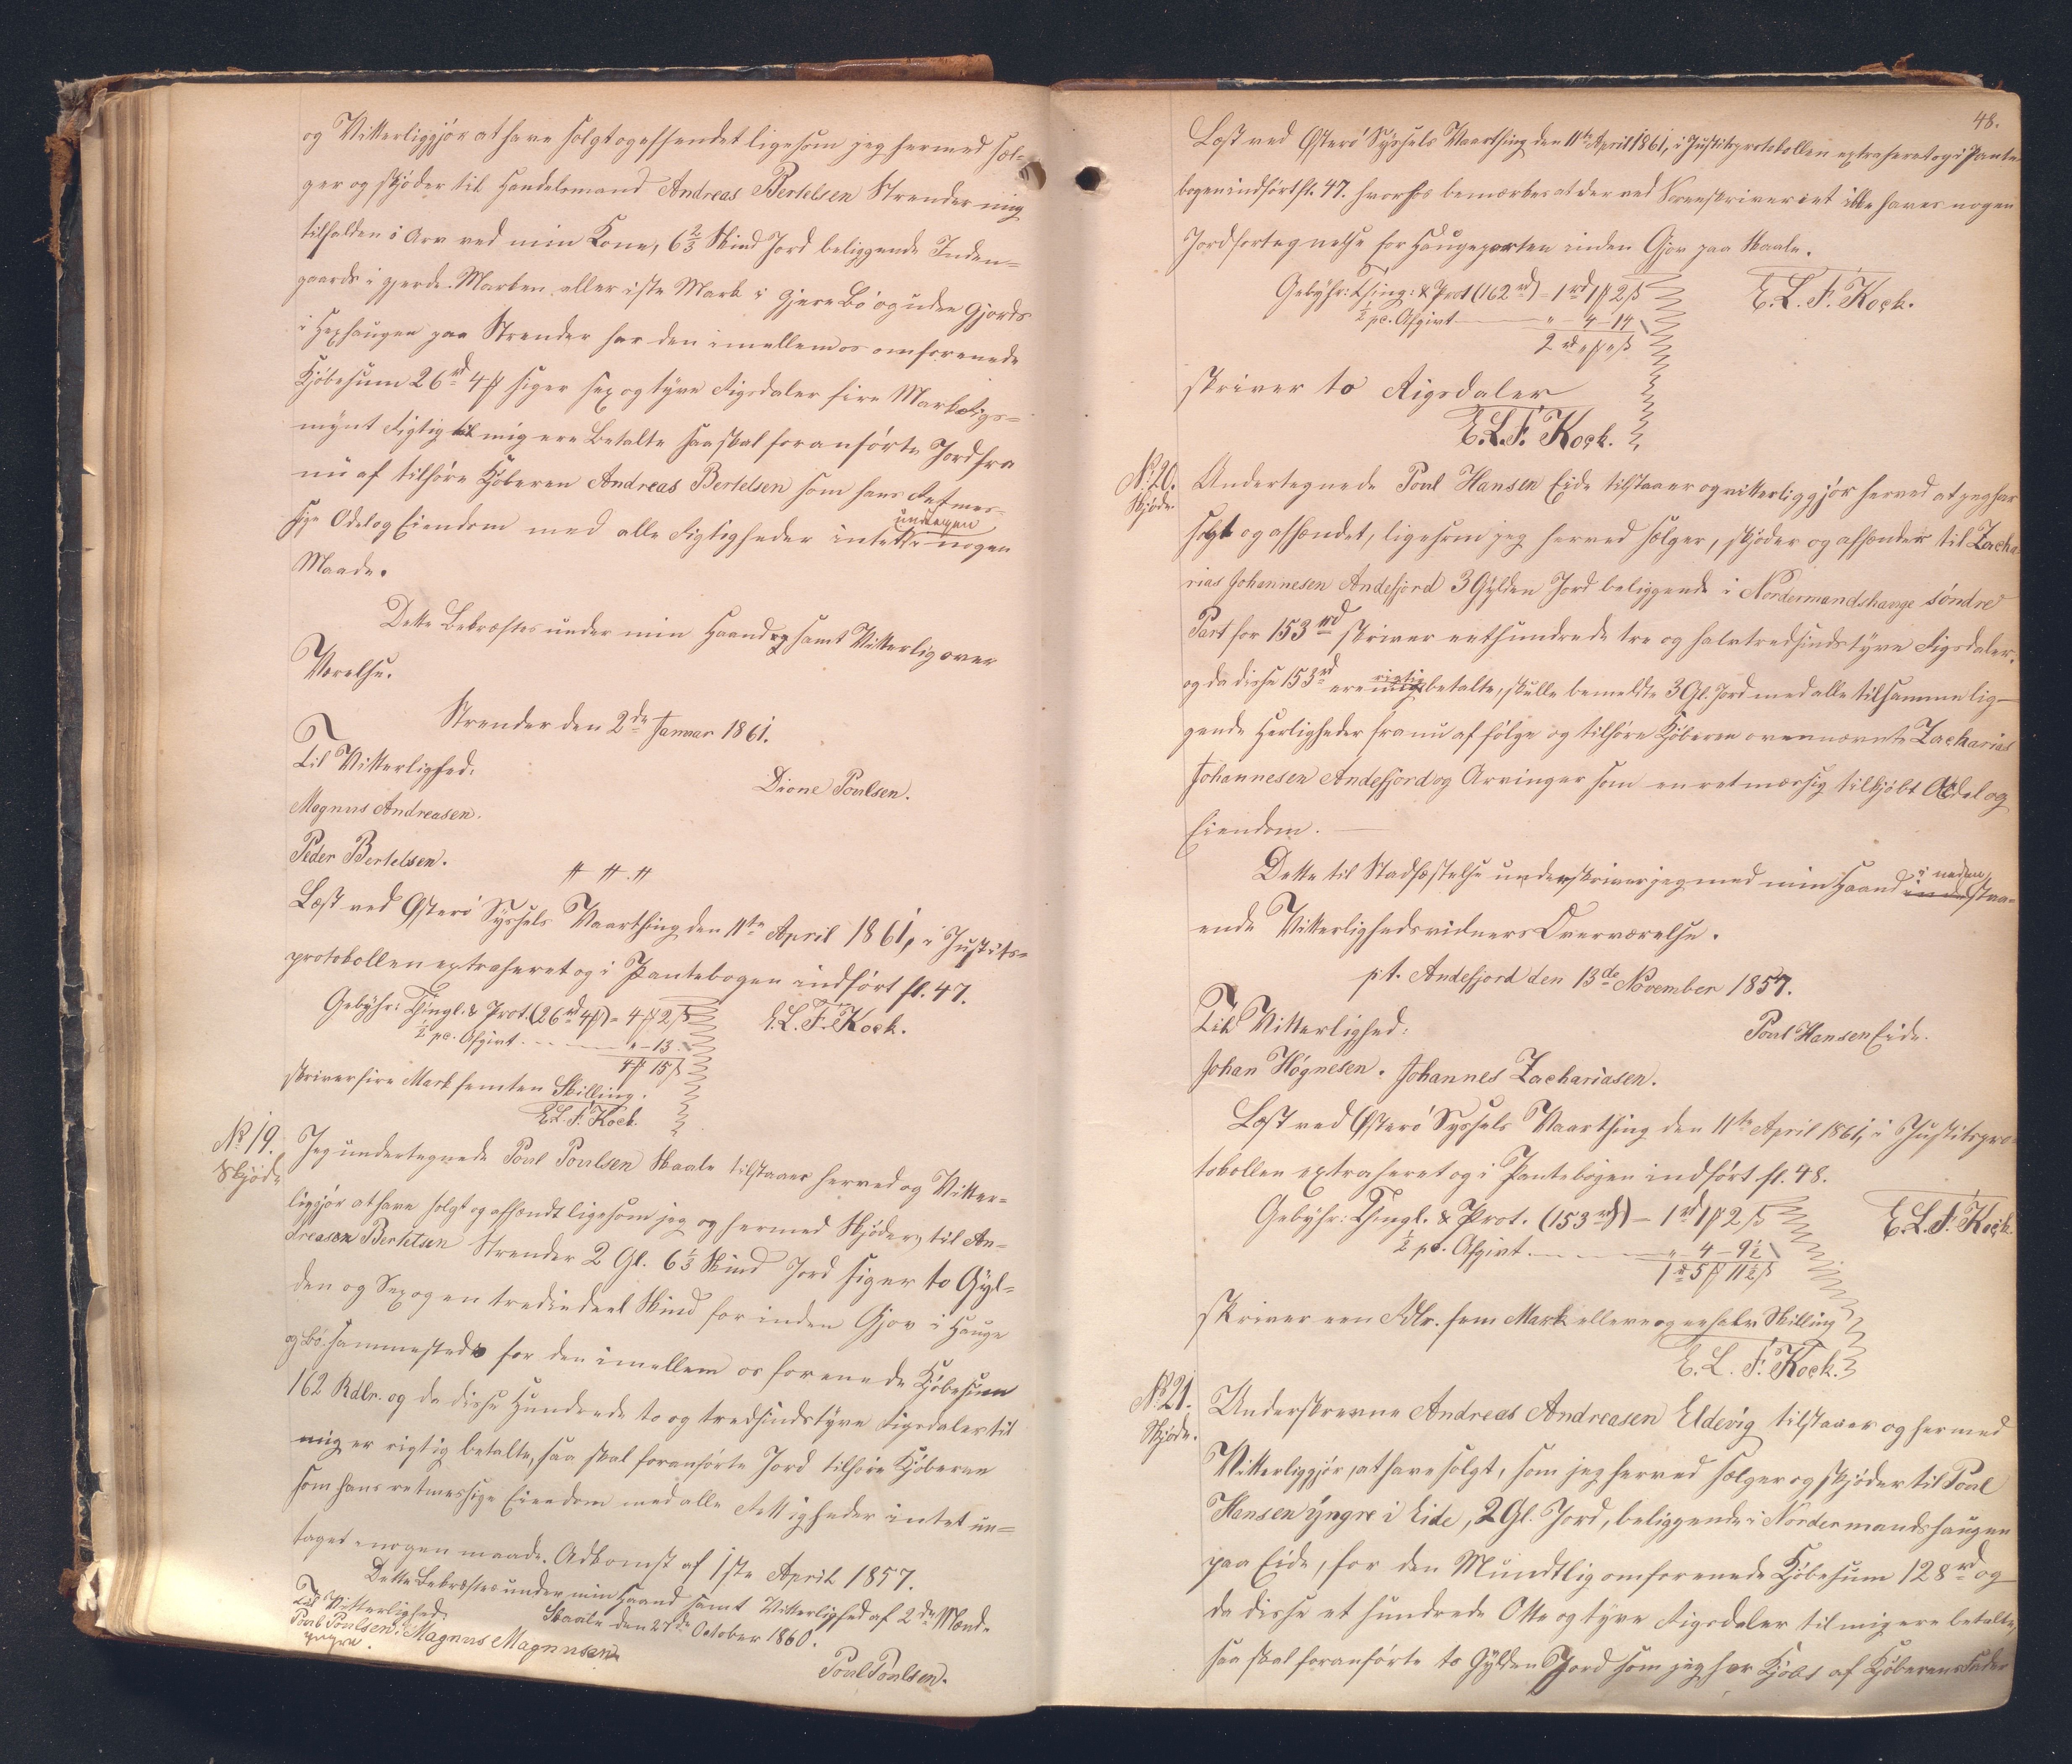 og Vitterliggjør at have solgt og affhendet ligesom jeg hermed sæl-
ger og skjøder til Handelsmand Andreas Bertelsen Strender mig
tilfalden i Arv ved min Kone, 6 2/3 Skind Jord beliggende Inden-
gaards i gjerde-Marken eller iste Mark i Gjerebø og uden Gjords
i Hexhaugen paa Strender for den imellem os omforenede
Kjøbesum 26 rd 4 ß siger sex og tyve Rigsdaler fire Mark Rigs-
mynt Rigtig til mig ere Betalte saa skal foranførte Jord fra
nu af tilhøre Kjøberen Andreas Bertelsen som hans Retmes-
sige Odel og Eiendom med alle Rigtigheder intet undtagen i nogen
Maade.
Dette Bekræftes under min Haand og samt Vitterlig over
Værelse.
Strender den 2de Januar 1861.
Til Vitterlighed:
Dione Poulsen.
Magnus Andreasen.
Peder Bertelsen.
# #.#
Læst ved Østerø Syssels Vaarthing den 11te April 1861, i Justits-
protokollen extraheret og i Pantebogen indført fl. 47.
Gebyhr: Thingl. & Prot. (26 rd 4 ß) = 4 ß 2 ß
E. L. F. Koch.
1/2 pc. Afgivt - - - " - 13
4 ß 15 ß
skriver fire Mark femten Skilling.
E. L. F. Koch.
No 19.
Skjøde
Jeg undertegnede Poul Poulsen Skaale tilstaaer herved og Vitter-
ligjør at have solgt og afhændt ligesom jeg og hermed Skjøder, til An-
dreasen Bertelsen Strender 2 Gl. 6 1/3 Skind Jord siger to Gyl-
den og Sex og en tredindeel Skind for inden Gjov i Hauge
og bø, sammesteds for den imellem os forenede Kjøbesum
162 Rdlr. og da disse Hundrede to og tredsindstyve Rigsdaler til
mig er rigtig betalte, saa skal foranførte Jord tilhøre Kjøberne
som hans retmessige Eiendom med alle Rettigheder intet un-
taget i nogen maade. Adkomst af 1ste April 1857.
Dette Bekræftes under min Haand samt Vitterlighed af 2de Mænd.
Til Vitterlighed.
Skaale den 27de October 1860.
Poul Poulsen. Magnus Magnussen
yngre.
Poul Poulsen.
48.
Læst ved Østerø Syssels Vaarthing den 11te April 1861, i Justitsprotokollen extraheret og i Pante-
bogen indført fl. 47. hvorhos bemærkes at der ved Sorenskriveriet ikke haves nogen
Jordfortegnelse for Haugeparten inden Gjov paa Skaale.
Gebyhr: Thing: & Prot (162 rd) = 1 rd 1 ß 2 ß
E. L. F. Koch.
1/2 pc. Afgivt - " - 4 - 14
2 rd " ß " ß
skriver to Rigsdaler
E. L. F. Koch.
No 20.
Skjøde.
Undertegnede Poul Hansen Eide tilstaaer og vitterliggjør herved at jeg har
solgt og afhændet, ligesom jeg herved sælger, skjøder og afhænder til Zacha-
rias Johannesen Andefjord 3 Gylden Jord beliggende i Nordermandshauge søndre
Part for 153 rd skriver eethundrede tre og halvtredsindstyve Rigsdaler.
og da disse 153 rd ere rigtig betalte, skulle bemeldte 3 Gl. Jord med alle tilsammen lig-
gende Herligheder fra nu af følge og tilhøre Kjøberen ovennævnte Zacharias
Johannesen Andefjord og Arvinger som en retmæssig tilkjøbt Odel og
Eiendom. -
Dette til Stadfæstelse underskriver jeg med min Haand i nedenstaa-
ende Vitterlighedsvidners Overværelse.
pt. Andefjord den 13de November 1857.
Til Vitterlighed:
Poul Hansen Eide.
Johan Høgnesen. Johannes Zachariasen.
Læst ved Østerø Syssels Vaarthing den 11te April 1861, i Justitspro-
tokollen extraheret og i Pantebogen indført fl. 48.
Gebyhr: Thingl. & Prot. (153 rd) - 1 rd 1 ß 2 ß
E. L. F. Koch.
1/2 pc. Afgivt. - - " - 4 - 9 1/2
1 rd 5 ß 11 1/2 ß
skriver een Rdlr. fem Mark elleve og en halv Skilling
E. L. F. Koch.
No 21.
Skjøde.
Underskrevne Andreas Andreasen Eldevig tilstaaer og hermed
Vitterliggjør, at have solgt, som jeg herved sælger og skjøder til Poul
Hansen yngre i Eide, 2 Gl. Jord, beliggende i Nordermandshaugen
paa Eide, for den Mundtlig omforenede Kjøbesum 128 rd og
da disse et hundrede Otte og tyve Rigsdaler til mig ere betalte,
saa skal foranførte to Gylden Jord som jeg har Kjøbt af Kjøberens Fader